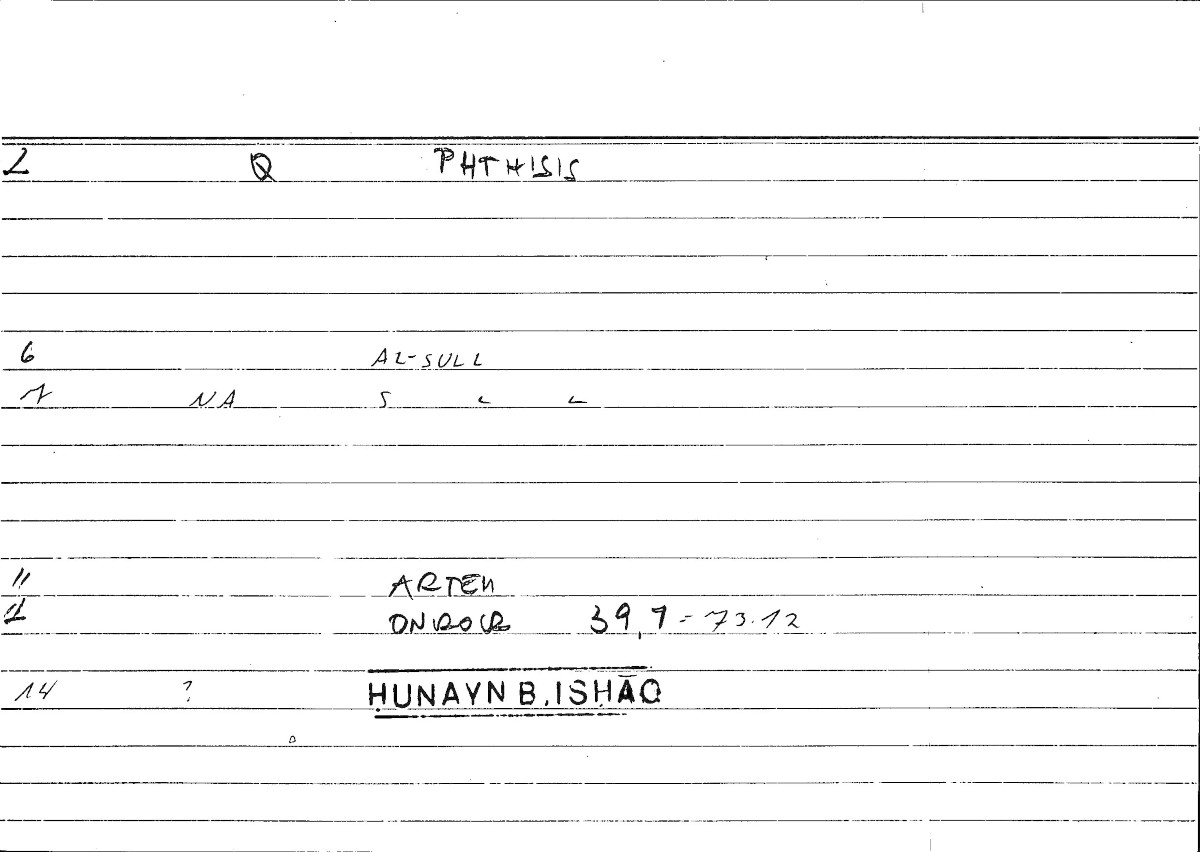 2 Q PHTHISIS
6 AL-SULL
7 NA S L L
11 ARTEM
12 ONIROCR 39,7 = 73.12
14 ? ḤUNAYN B. ISḤĀQ